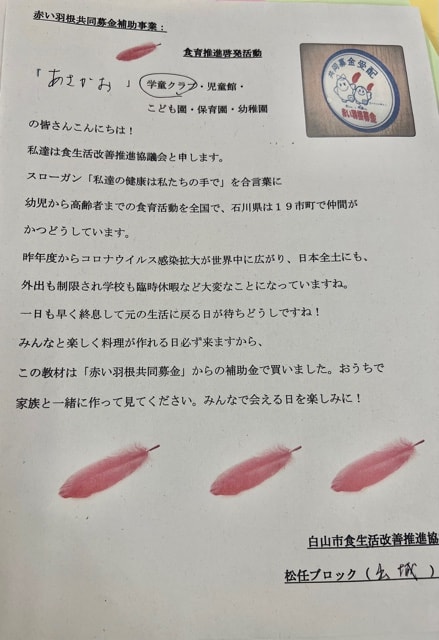 赤い羽根共同募金補助事業：
食育推進啓発活動
「あさがお」学童クラブ・児童館・
こども園・保育園・幼稚園
共同募金受配
赤い羽根募金
の皆さんこんにちは！
私達は食生活改善推進協議会と申します。
スローガン「私達の健康は私たちの手で」を合言葉に
幼児から高齢者までの食育活動を全国で、石川県は１９市町で仲間が
かつどうしています。
昨年度からコロナウイルス感染拡大が世界中に広がり、日本全土にも、
外出も制限され学校も臨時休暇など大変なことになっていますね。
一日も早く終息して元の生活に戻る日が待ちどうしですね！
みんなと楽しく料理が作れる日必ず来ますから、
この教材は「赤い羽根共同募金」からの補助金で買いました。おうちで
家族と一緒に作って見てください。みんなで会える日を楽しみに！
白山市食生活改善推進協
松任ブロック（出城）